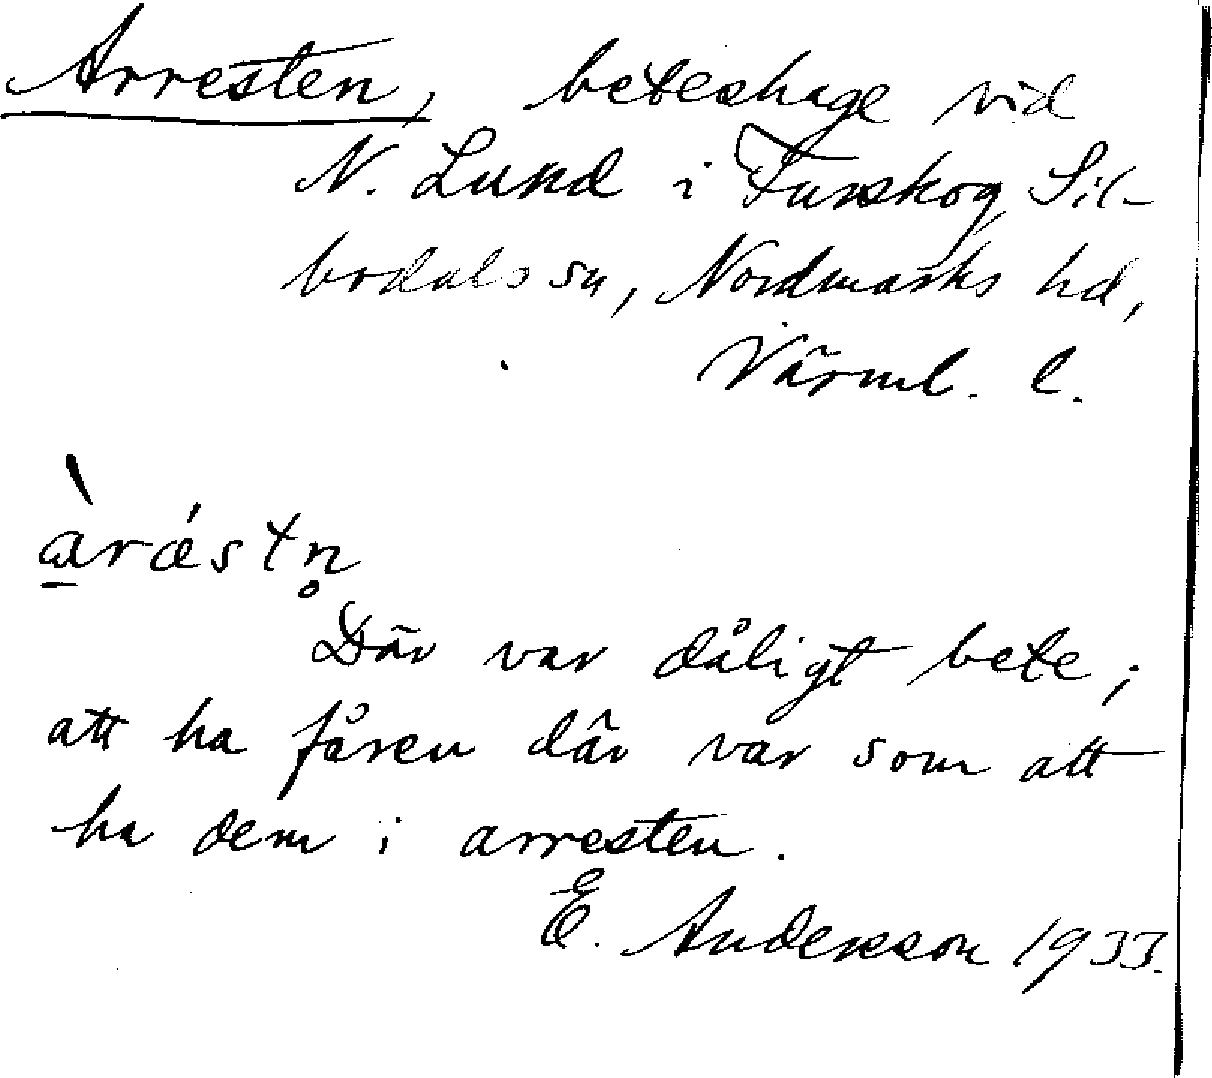 Arresten, beteshage vid
N. Lund i Turskog Sil-
bodals sn, Nordmarks hd,
Värml. l.
àrǽstn̥
Där var dåligt bete;
att ha fåren där var som att
ha dem i arresten.
E. Andersson 1933.